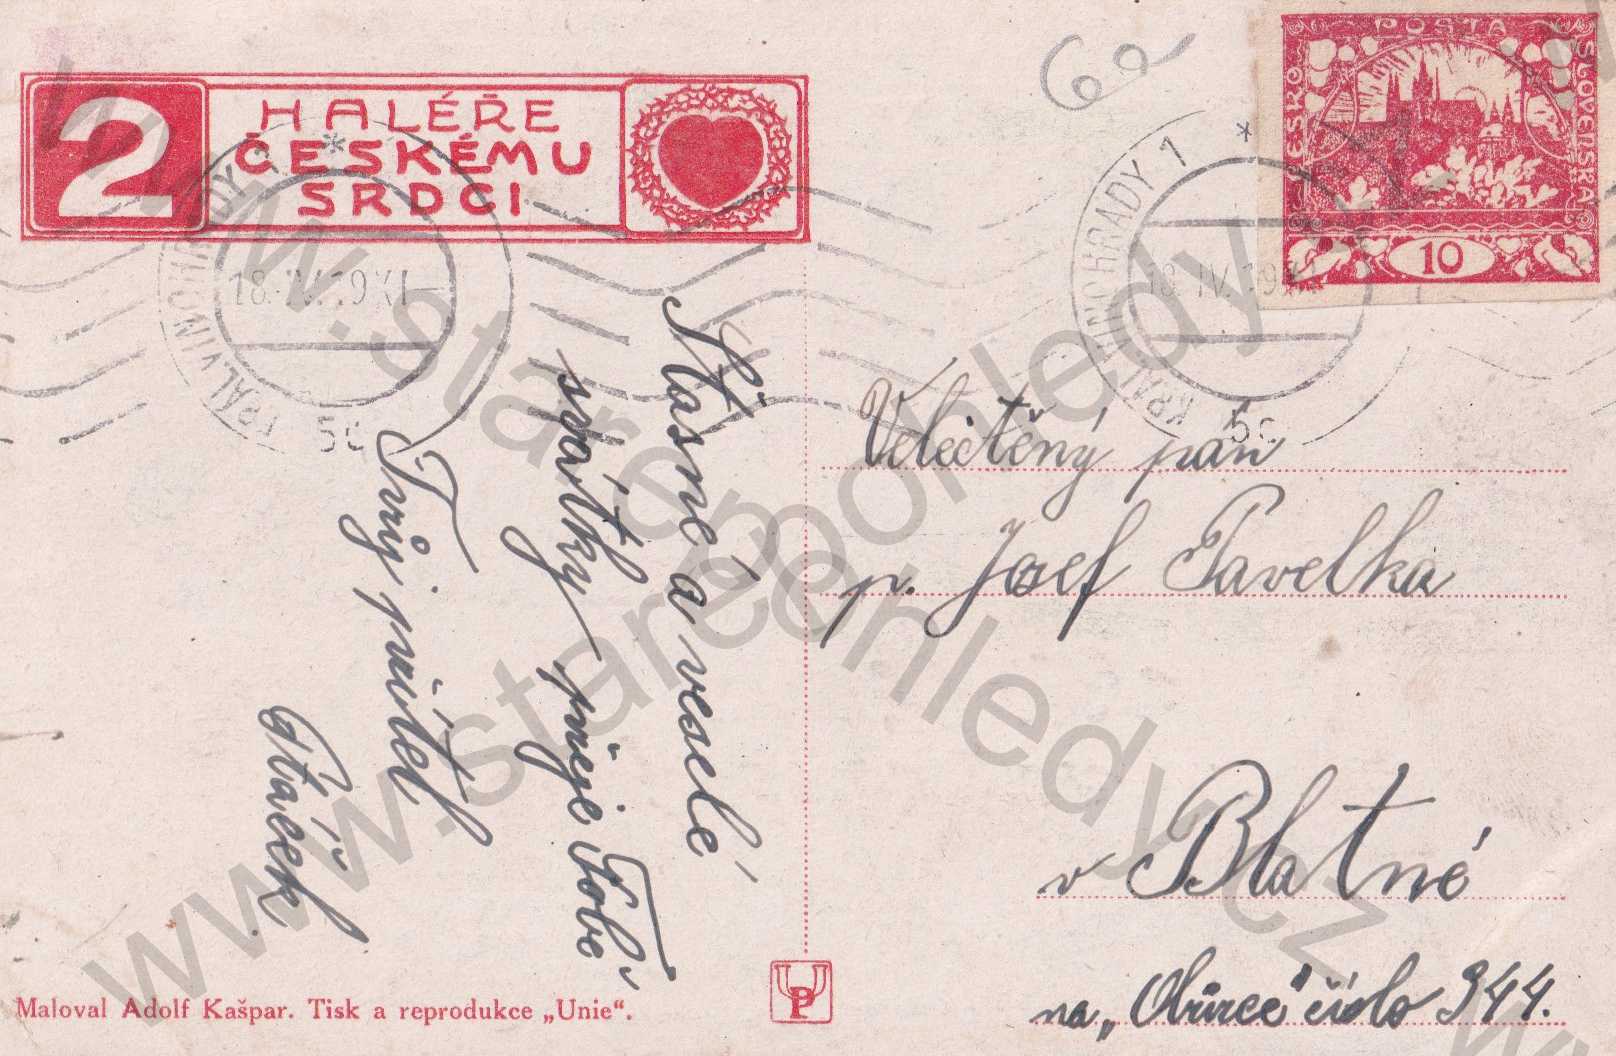 2
HALÉŘE
ČESKÉMU
SRDCI
POŠTA
ČESKO
SLOVENSKÁ
10
KRÁL. VINOHRADY 1
18. IV. 19 XI
5c
KRÁL. VINOHRADY 1
18. IV. 19 XI
5c
60
Šťasné a veselé
svátky přeje Tobě
Tvůj přítel
Ptáček.
Velectěný pán
p. Josef Pavelka
v Blatné
na číslo 344.
Maloval Adolf Kašpar. Tisk a reprodukce „Unie“.
UP
www.starepohledy.cz
www.starepohledy.cz